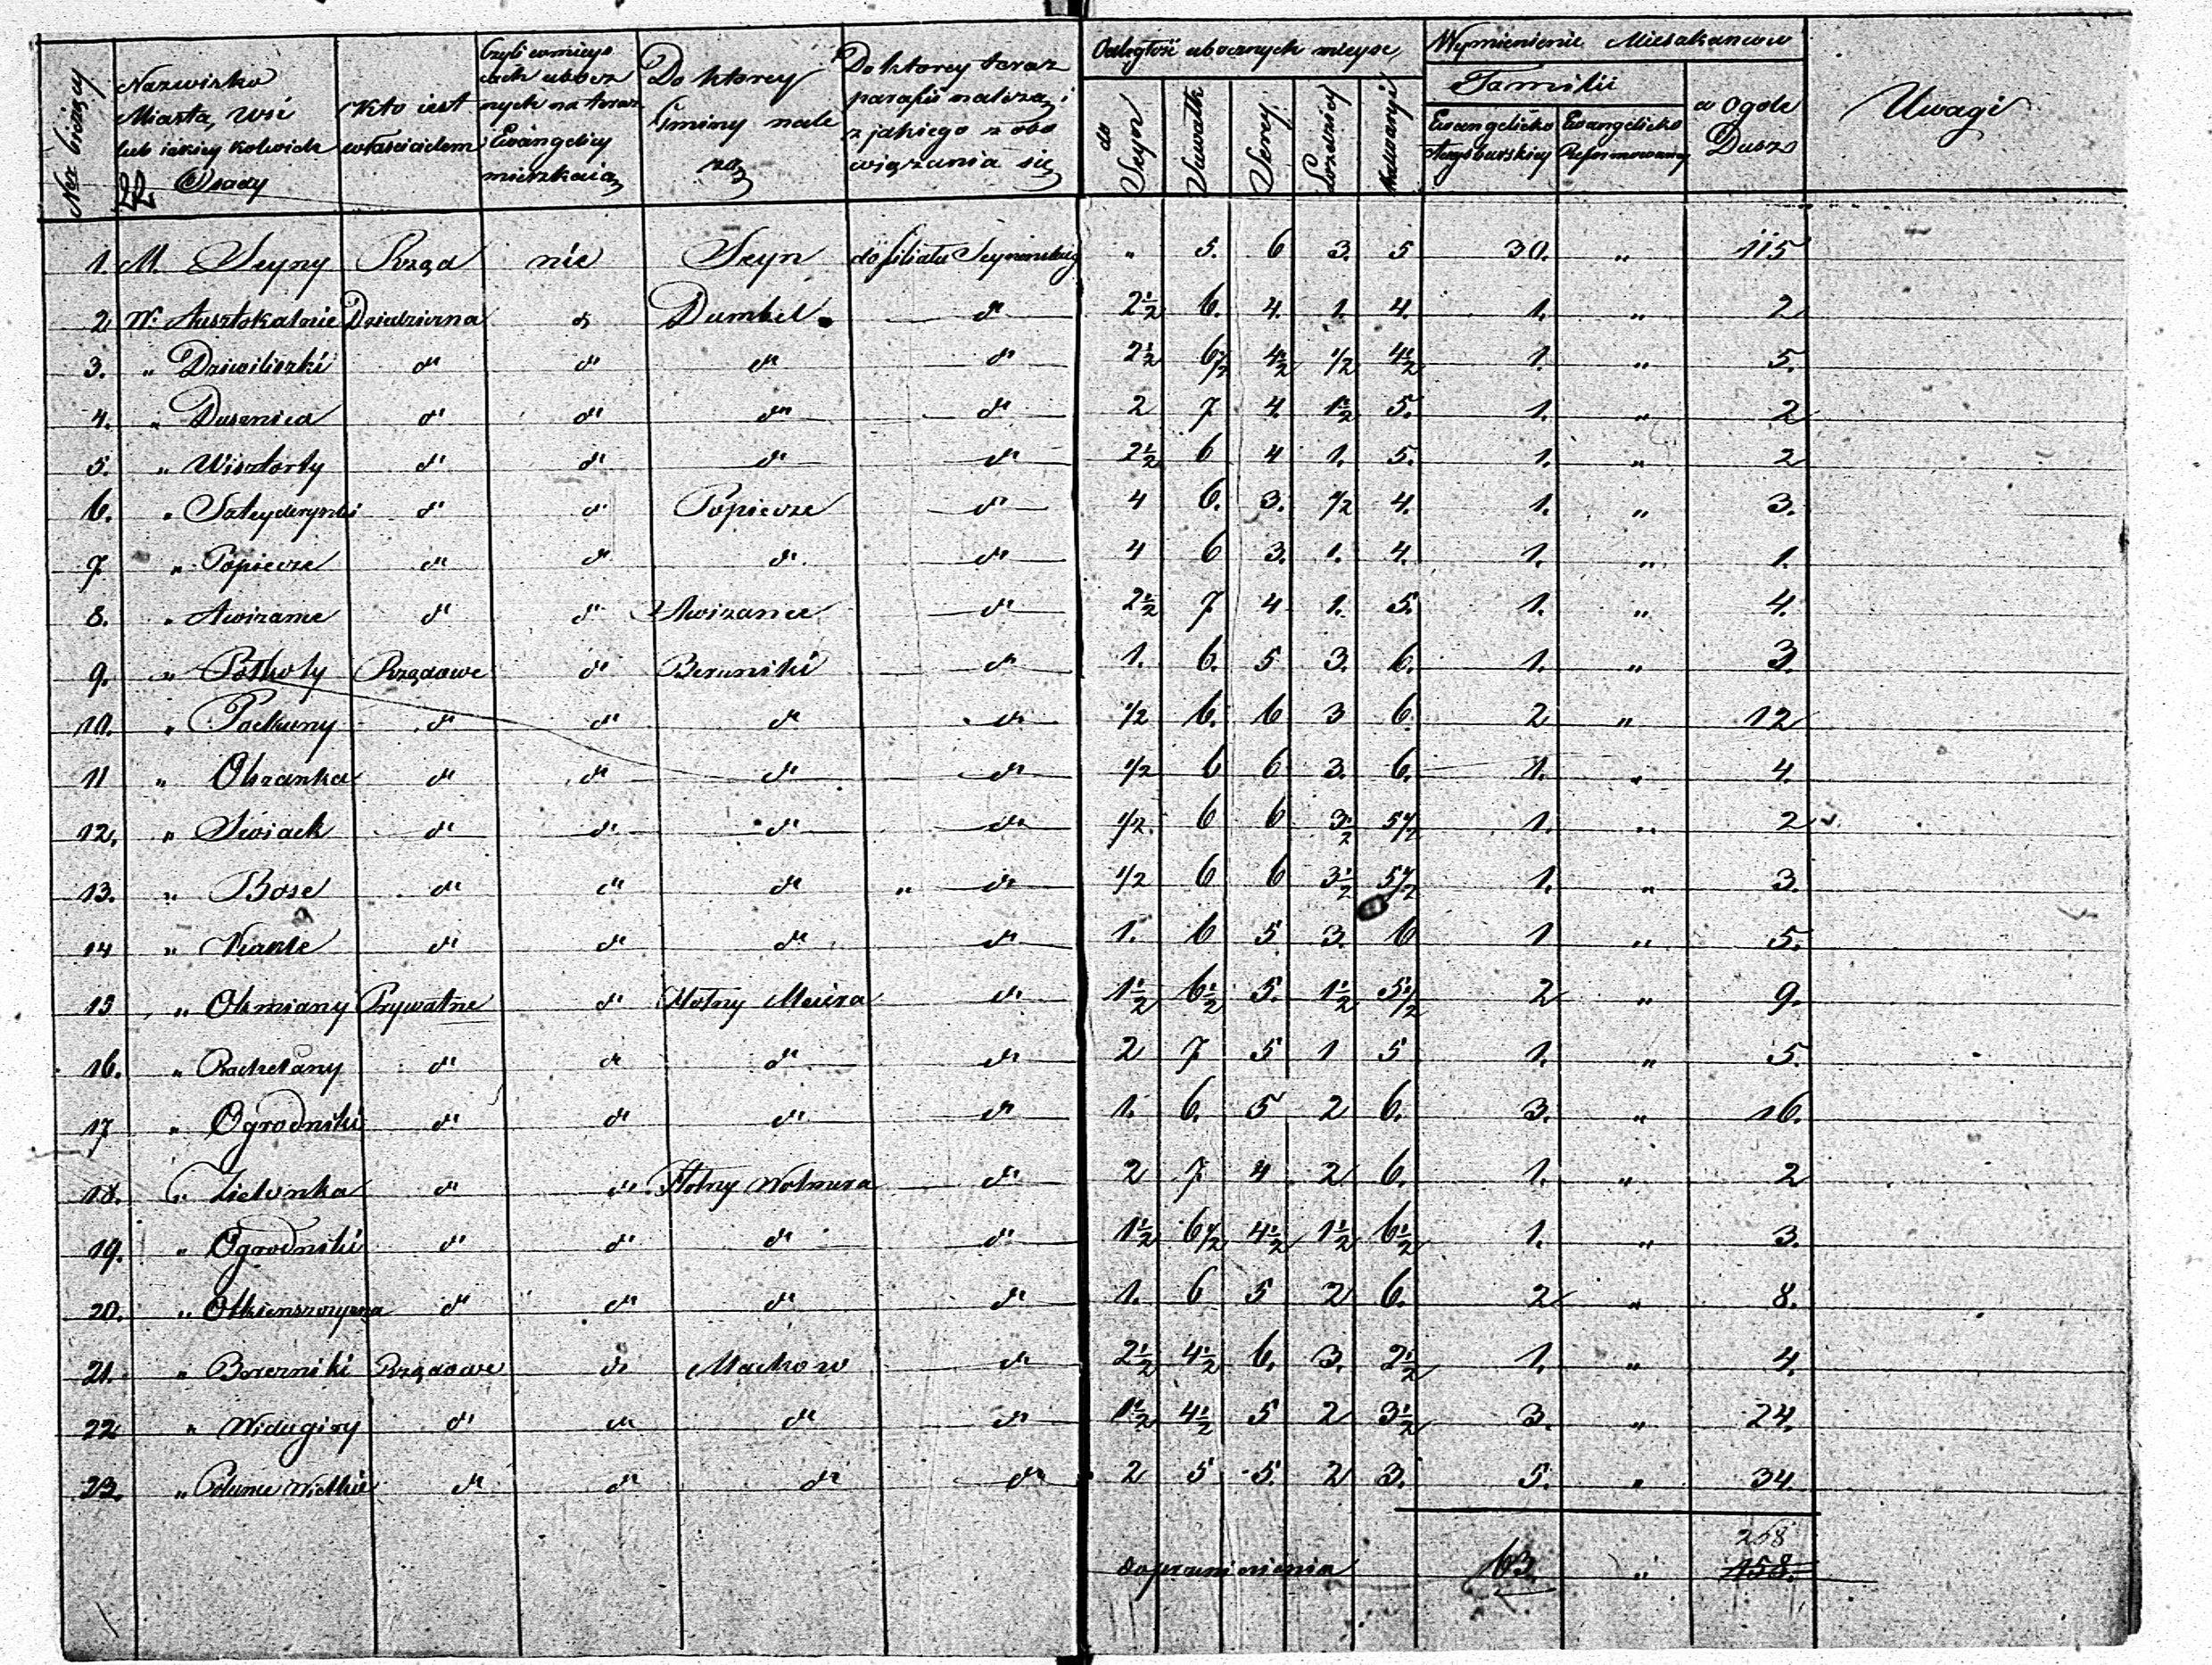 Ner bieżący
Nazwisko Miasta, Wsi lub iakiey kolwiek Osady
22
Kto iest właścicielem
Czyli w mieys cach ubocz nych na teraz Ewangelicy mieszkaią
Do ktorey Gminy nale zą
Do ktorey teraz parafii należą i z jakiego z obo wiązania się
Odległość ubocznych mieysc
do Seyn
Suwałk
Serey
Łozdziey
Kalwaryi
Wymienienie Mieszkancow
Familii
Ewangelicko Augsburskiey
Ewangelicko Reformowaney
w Ogole Dusz
Uwagi
1. M. Seyny Rząd nie Seyn do filiału Seynenskieg " 5. 6 3. 5 30. " 115
2 W. Austokalnie Dziedziczna d° Dumbel d° 2½ 6. 4. 1. 4. 1. " 2
3. " Dziwiliszki d° d° d° d° 2½ 6½ 4½ ½ 4½ 1. " 5.
4. " Dusznica d° d° d° d° 2 7 4. 1½ 5. 1. " 2
5. " Wisztorty d° d° d° d° 2½ 6 4 1. 5. 1. " 2
6. " d° d° Popiecze d° 4 6. 3. ½ 4. 1. " 3.
7 " Popiecze d° d° d° d° 4 6 3. 1. 4. 1. " 1.
8. " Awizance d° d° Awizance d° 2½ 7 4 1. 5. 1. " 4.
9. " Poskoty Rządowe d° Berzniki d° 1. 6. 5 3. 6. 1. " 3.
10. " Pockuny d° d° d° d° ½ 6. 6 3 6. 2 " 12
11 " Olszanka d° d° d° d° ½ 6 6 3. 6. 1. " 4.
12. " Swiack d° d° d° d° ½ 6 6 3½ 5½ 1. " 2
13. " Bose d° d° d° " d° ½ 6 6 3½ 5½ 1. " 3.
14 " d° d° d° d° 1. 6 5 3. 6 1 " 5.
15 " Okmiany Prywatne d° Hołny Meiera d° 1½ 6½ 5. 1½ 5½ 2 " 9.
16. " Rachelany d° d° d° d° 2 7 5 1 5 1. " 5.
17 " Ogrodniki d° d° d° d° 1. 6. 5 2 6. 3. " 16.
18. " Zielonka d° d° Hołny Wolmera d° 2 7 4 2 6. 1. " 2
19. " Ogrodniki d° d° d° d° 1½ 6½ 4½ 1½ 6½ 1. " 3.
20. " d° d° d° d° 1. 6 5 2 6. 2 " 8.
21. " Rządowe d° Mackow d° 2½ 4½ 6. 3. 2½ 1. " 4.
22 " Widugiry d° d° d° d° 1½ 4½ 5 2 3½ 3. " 24.
23. " Polunce Wielkie d° d° d° d° 2 5 5. 2 3. 5. " 34.
258
do przeniesienia 63. " 158.